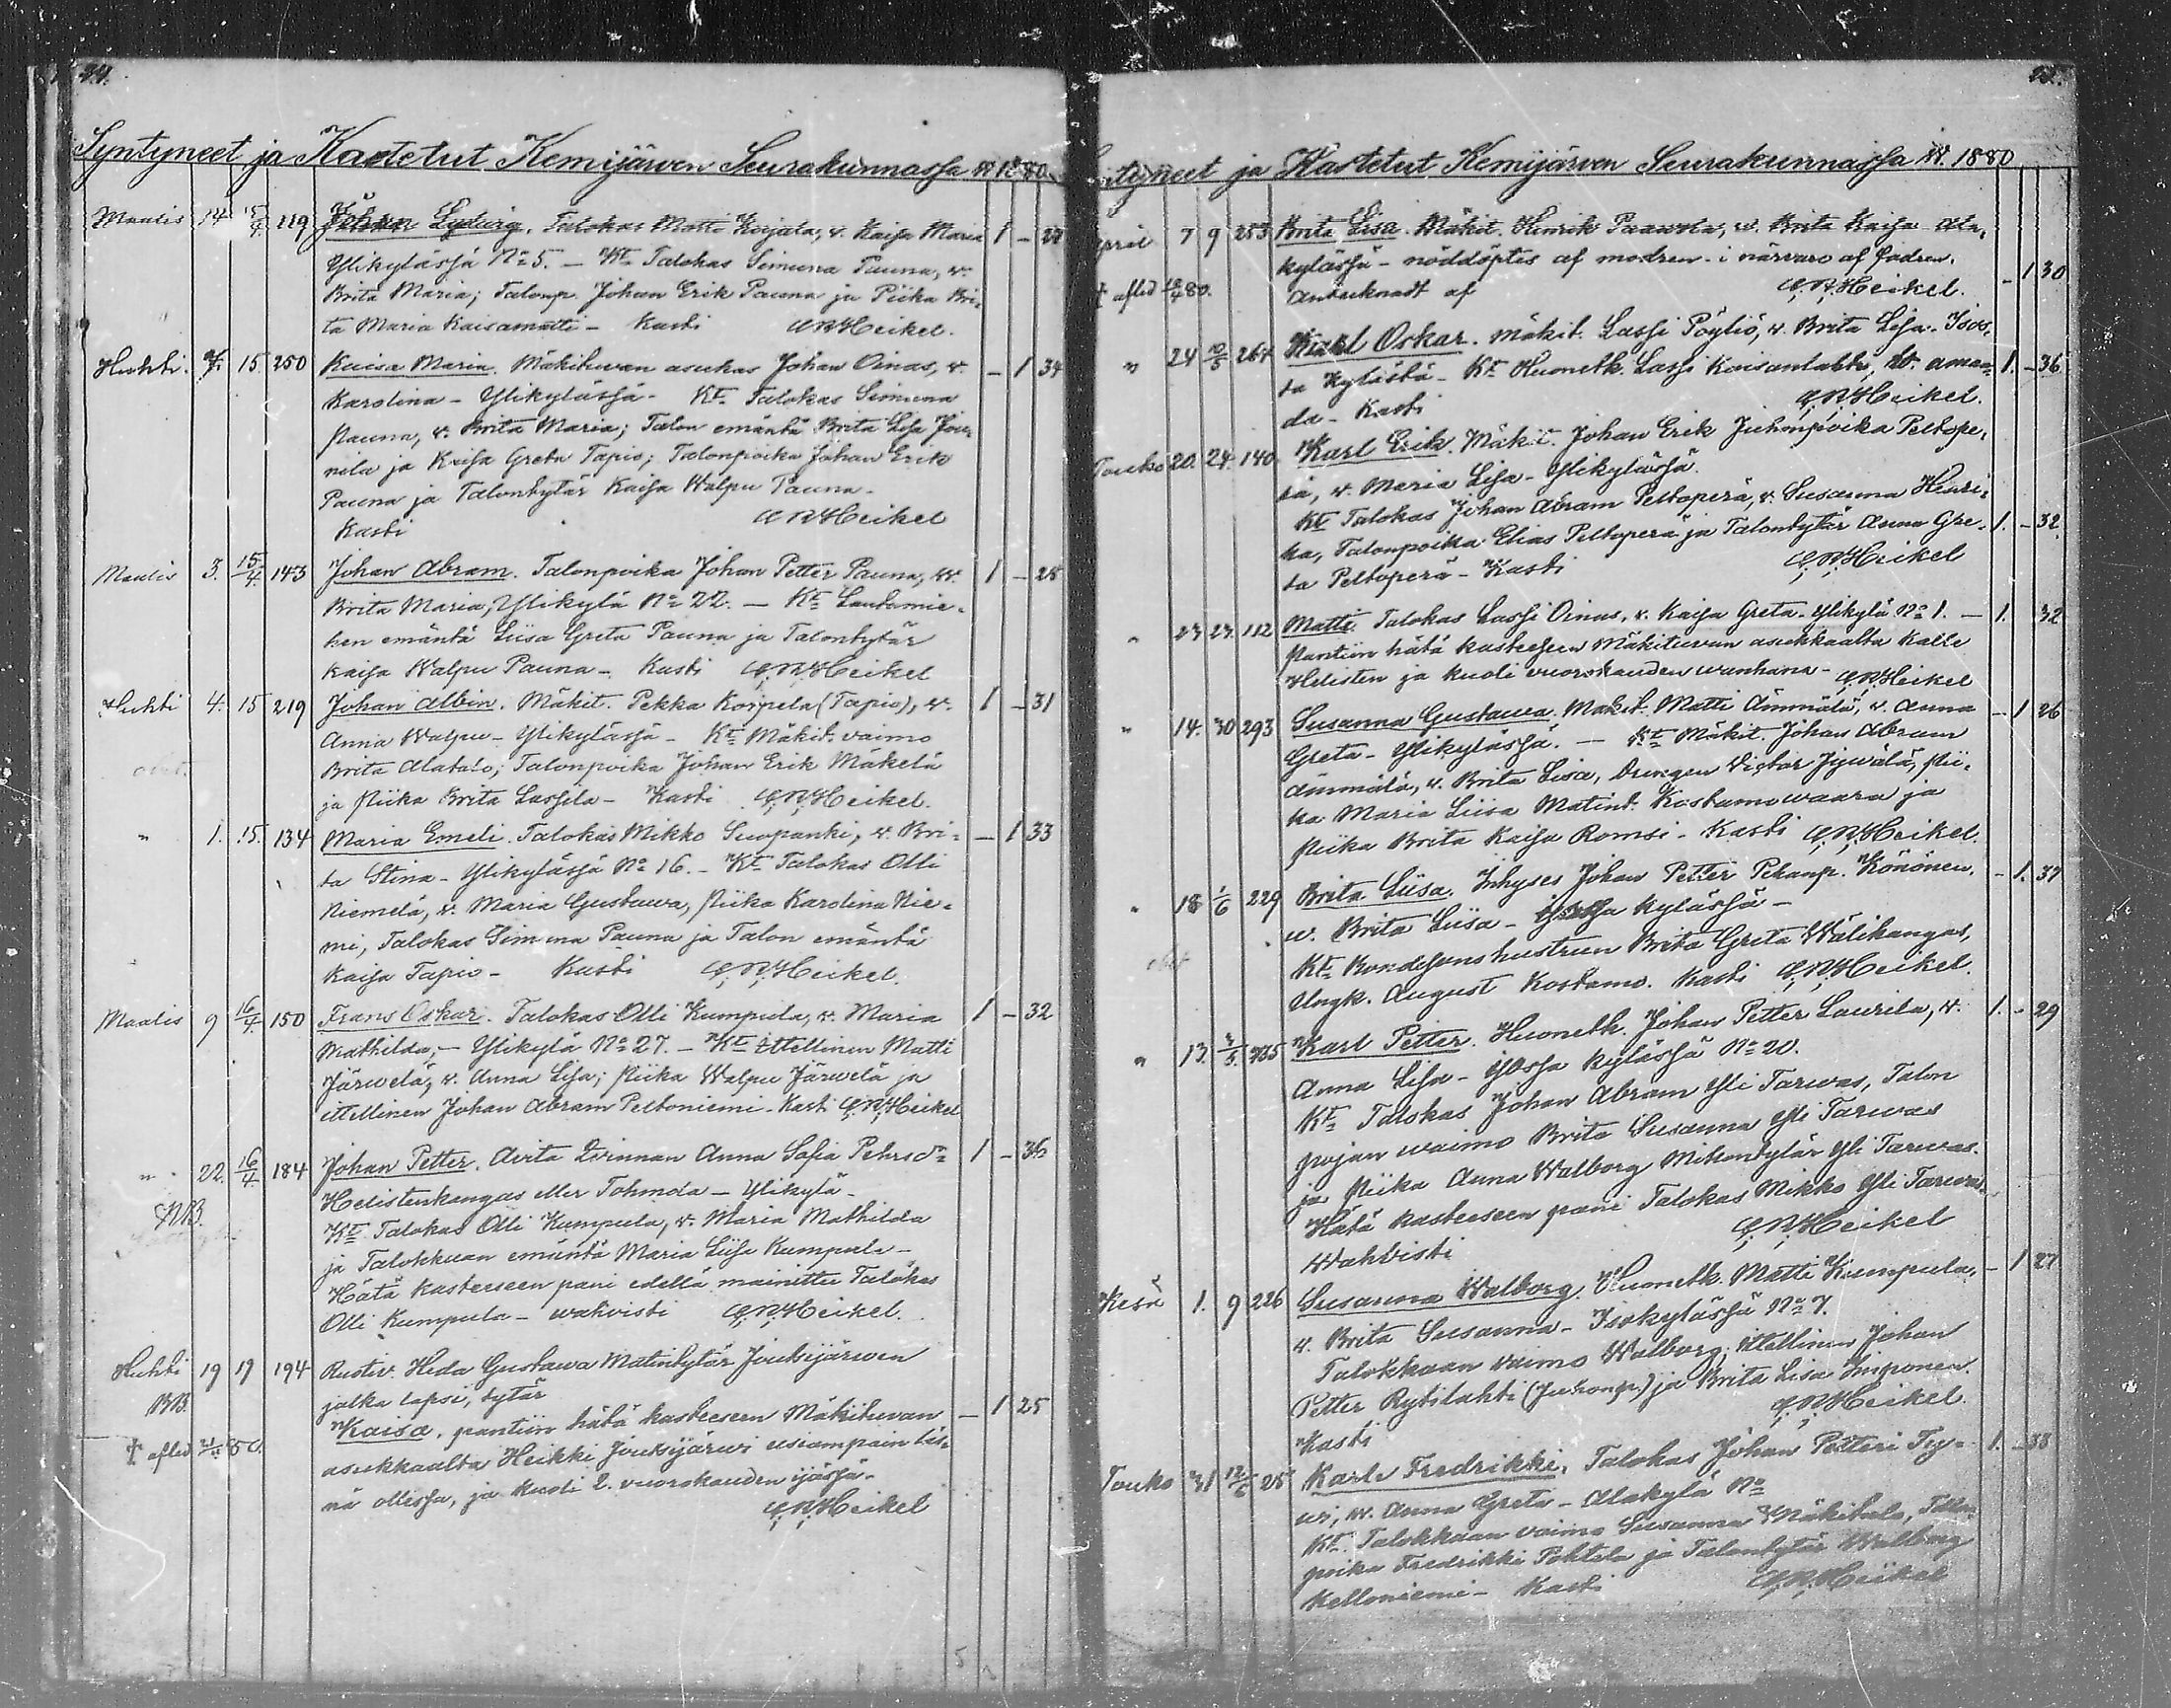 24.
Syntyneet ja Kastetut Kemijärwen Seurakunnassa w. 1880.
Maalis 14 15/4 119 Johan Ludwig. Talokas Matti Karjala, v. Kaisa Maria 1 -
Ylikylässä No 5. — Kt. Talokas Simuna Pauna, v.
Brita Maria; Talonp. Johan Erik Pauna ja Piika Bri-
ta Maria Kaisamatti - Kasti Heikel.
Huhti. 15 250 Kaisa Maria. Mäkituwan asukas Johan Oinas, v. - 1 34
Karolina - Ylikylässä - Kt. Talokas Simuna
Pauna, v. Brita Maria; Talon emäntä Brita Lisa Jou-
nila ja Kaisa Greta Tapio; Talonpoika Johan Erik
Pauna ja Talontytär Kaisa Walpu Pauna.
Kasti Heikel
Maalis 3. 15/4 143 Johan Abram. Talonpoika Johan Petter Pauna, w. 1 - 25
Brita Maria, Ylikylä No 22. — Kt. Lautamie-
hen emäntä Liisa Greta Pauna ja Talontytär
Kaisa Walpu Pauna - Kasti Heikel
Huhti 4. 15 219 Johan Albin. Mäkit. Pekka Korpela (Tapio), v. 1 - 31
Anna Walpu - Ylikylässä - Kt. Mäkit. vaimo
Brita Alatalo; Talonpoika Johan Erik Mäkelä
ja Piika Brita Lassila - Kasti Heikel.
" 1. 15. 134 Maria Emeli. Talokas Mikko Suopanki, v. Bri- - 1 33
ta Stina - Ylikylässä No 16. - Kt. Talokas Olli
Niemelä, v. Maria Gustawa, Piika Karolina Nie-
mi, Talokas Simuna Pauna ja Talon emäntä
Kaisa Tapio - Kasti Heikel.
Maalis 9 16/4 150 Frans Oskar. Talokas Olli Kumpula, v. Maria 1 - 32
Mathilda, - Ylikylä No 27. - Kt. Ittellinen Matti
Järwelä, v. Anna Lisa; Piika Walpu Järwelä ja
ittellinen Johan Abram Peltoniemi - Kasti Heikel
" 22. 16/4 184 Johan Petter, Avita Qvinnan Anna Sofia Pehrsd. 1 - 36
Helistenkangas eller Tohmola - Ylikylä -
NB. Kt. Talokas Olli Kumpula, v. Maria Mathilda
ja Talokkaan emäntä Maria Liisa Kumpula -
Hätä kasteeseen pani edellä mainittu Talokas
Olli Kumpula - wahvisti Heikel.
Huhti 19 19 194 Rustiv. Heda Gustawa Matintytär Jouksijärwen
jalka lapsi, tytär
Kaisa, pantiin hätä kasteeseen Mäkituwan - 1 25
asukkaalta Heikki Jouksijärwi usiampain läs-
nä ollessa, ja kuoli 2. vuorokauden ijässä.
Heikel
Syntyneet ja Kastetut Kemijärwen Seurakunnassa w. 1880
April 7 9 253 Brita Lisa. Mäkit. Henrik Paawola, w. Brita Kaisa Ala-
kylässä - nöddöptes af modren i närvaro af fadren.
Antecknadt af Heikel. - 1 30
" 24 10/5 264 Karl Oskar. Mäkit. Lassi Pöyliö, v. Brita Lisa - Isos-
ta kylästä - Kt. Huonetk. Lassi Kaisanlahti, w. Aman- 1. - 36
da - Kasti Heikel.
Touko 20. 24. 140 Karl Erik. Mäkit. Johan Erik Juhonpoika Peltope-
rä, v. Maria Lisa - Ylikylässä.
Kt. Talokas Johan Abram Peltoperä, v. Susanna Henri-
ka, Talonpoika Elias Peltoperä ja Talontytär Anna Gre- 1. - 32
ta Peltoperä - Kasti Heikel
" 23 23. 112 Matti. Talokas Lassi Oinas, v. Kaisa Greta - Ylikylä No 1. — 1. 32
Pantiin hätä kasteeseen Mäkituwan asukkaalta Kalle
Helisten ja kuoli vuorokauden wanhana - Heikel
" 14. 30 293 Susanna Gustawa. Mäkit. Matti Ämmälä, v. Anna - 1 26
Greta - Ylikylässä. — Kt. Mäkit. Johan Abram
Ämmälä, v. Brita Lisa, Drengen Victor Jywälä, Pii-
ka Maria Liisa Matint. Kostamowaara ja
Piika Brita Kaisa Romsi - Kasti Heikel.
" 18 1/6 229 Brita Liisa. Inhyses Johan Petter Pekanp. Könönen, - 1. 37
w. Brita Liisa - Isossa kylässä -
Kt. Bondesons hustrun Brita Greta Wälikangas,
Ungk. August Kostamo. Kasti Heikel.
" 13. Karl Petter. Huonetk. Johan Petter Laurila, v. 1. - 29
Anna Lisa - Isossa kylässä No 20.
Kt. Talokas Johan Abram Yli Tarwas, Talon
pojan waimo Brita Susanna Yli Tarwas
ja Piika Anna Walborg Mikontytär Yli Tarwas.
Hätä kasteeseen pani Talokas Mikko Yli Tarwas.
Wahvisti Heikel
Kesä 1. 9 226 Susanna Walborg. Huonetk. Matti Kumpula, - 1 27
v. Brita Susanna - Isokylässä No 7.
Talokkaan vaimo Walborg; ittellinen Johan
Petter Rytilahti (Juhonp.) ja Brita Lisa Imponen.
Kasti Heikel.
Touko 31 12/6 25 Karle Fredrikki, Talokas Johan Petteri Ty- 1. - 33
ni, w. Anna Greta - Alakylä No
Kt. Talokkaan vaimo Susanna Mäkitalo, Talon-
poika Fredrikki Pohtola ja Talontytär Walborg
Kelloniemi - Kasti Heikel